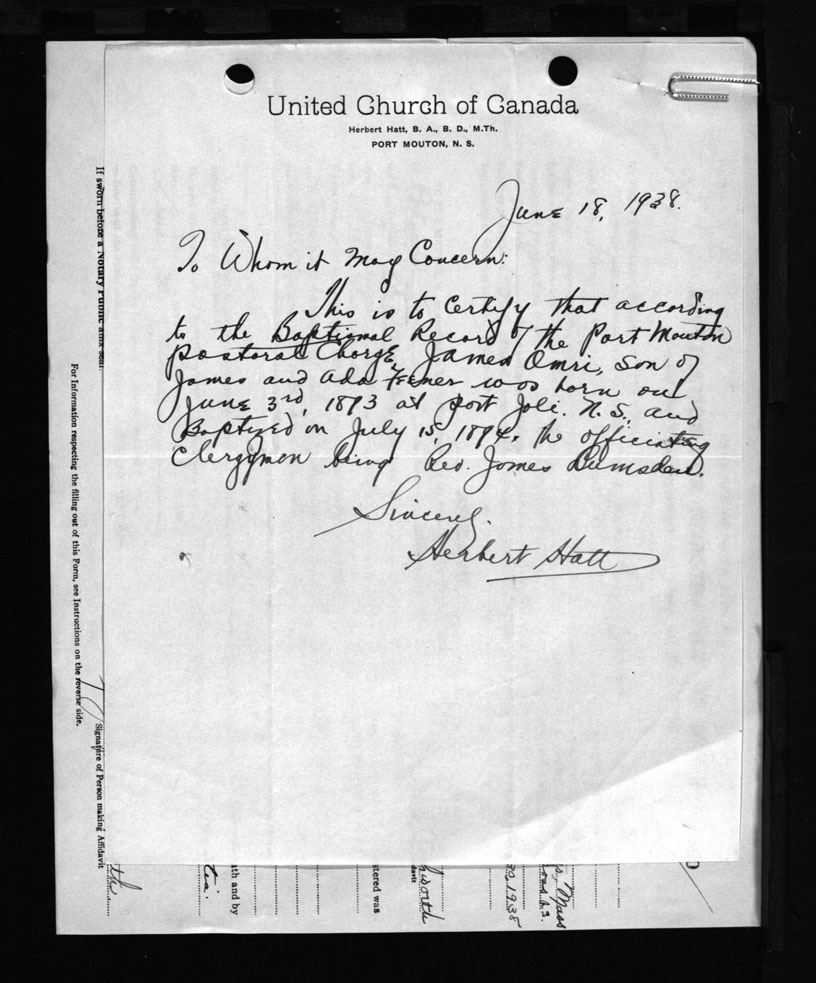 United Church of Canada
Herbert Hatt, B. A., B. D., M.Th.
PORT MOUTON, N. S.
June 18, 1938.
To Whom it May Concern:
This is to Certify that according
to the Baptismal Record of the Port Mouton
pastoral Charge, James Omri, son of
James and Ada was born on
June 3rd, 1893 at Port Joli. N.S. and
Baptized on July 15, 1894, the officiating
Clergyman being Rev. James Lumsden.
Sincerely.
Herbert Hatt
If sworn before a Notary Public affix seal.
For Information respecting the filling out of this Form, see Instructions on the reverse side.
Signature of Person making Affidavit
ath and by
stered was
davit
hworth
1938
s, Mass